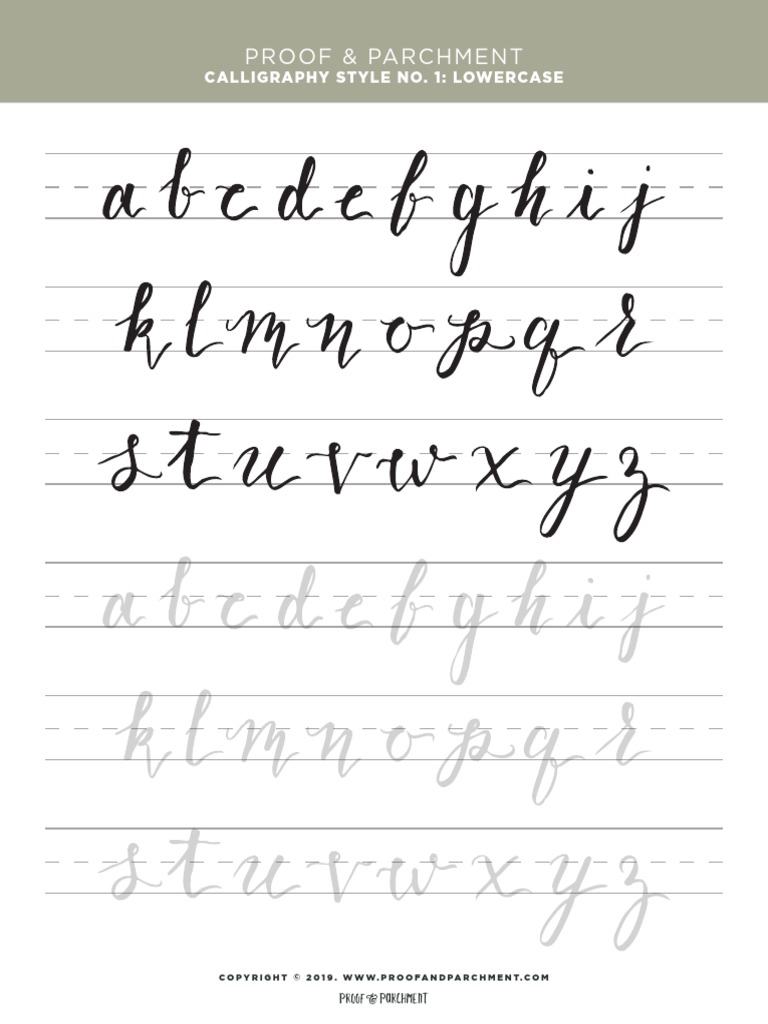 PROOF & PARCHMENT
CALLIGRAPHY STYLE NO. 1: LOWERCASE
a b c d e f g h i j
k l m n o p q r
s t u v w x y z
a b c d e f g h i j
k l m n o p q r
s t u v w x y z
COPYRIGHT © 2019. WWW.PROOFANDPARCHMENT.COM
PROOF & PARCHMENT